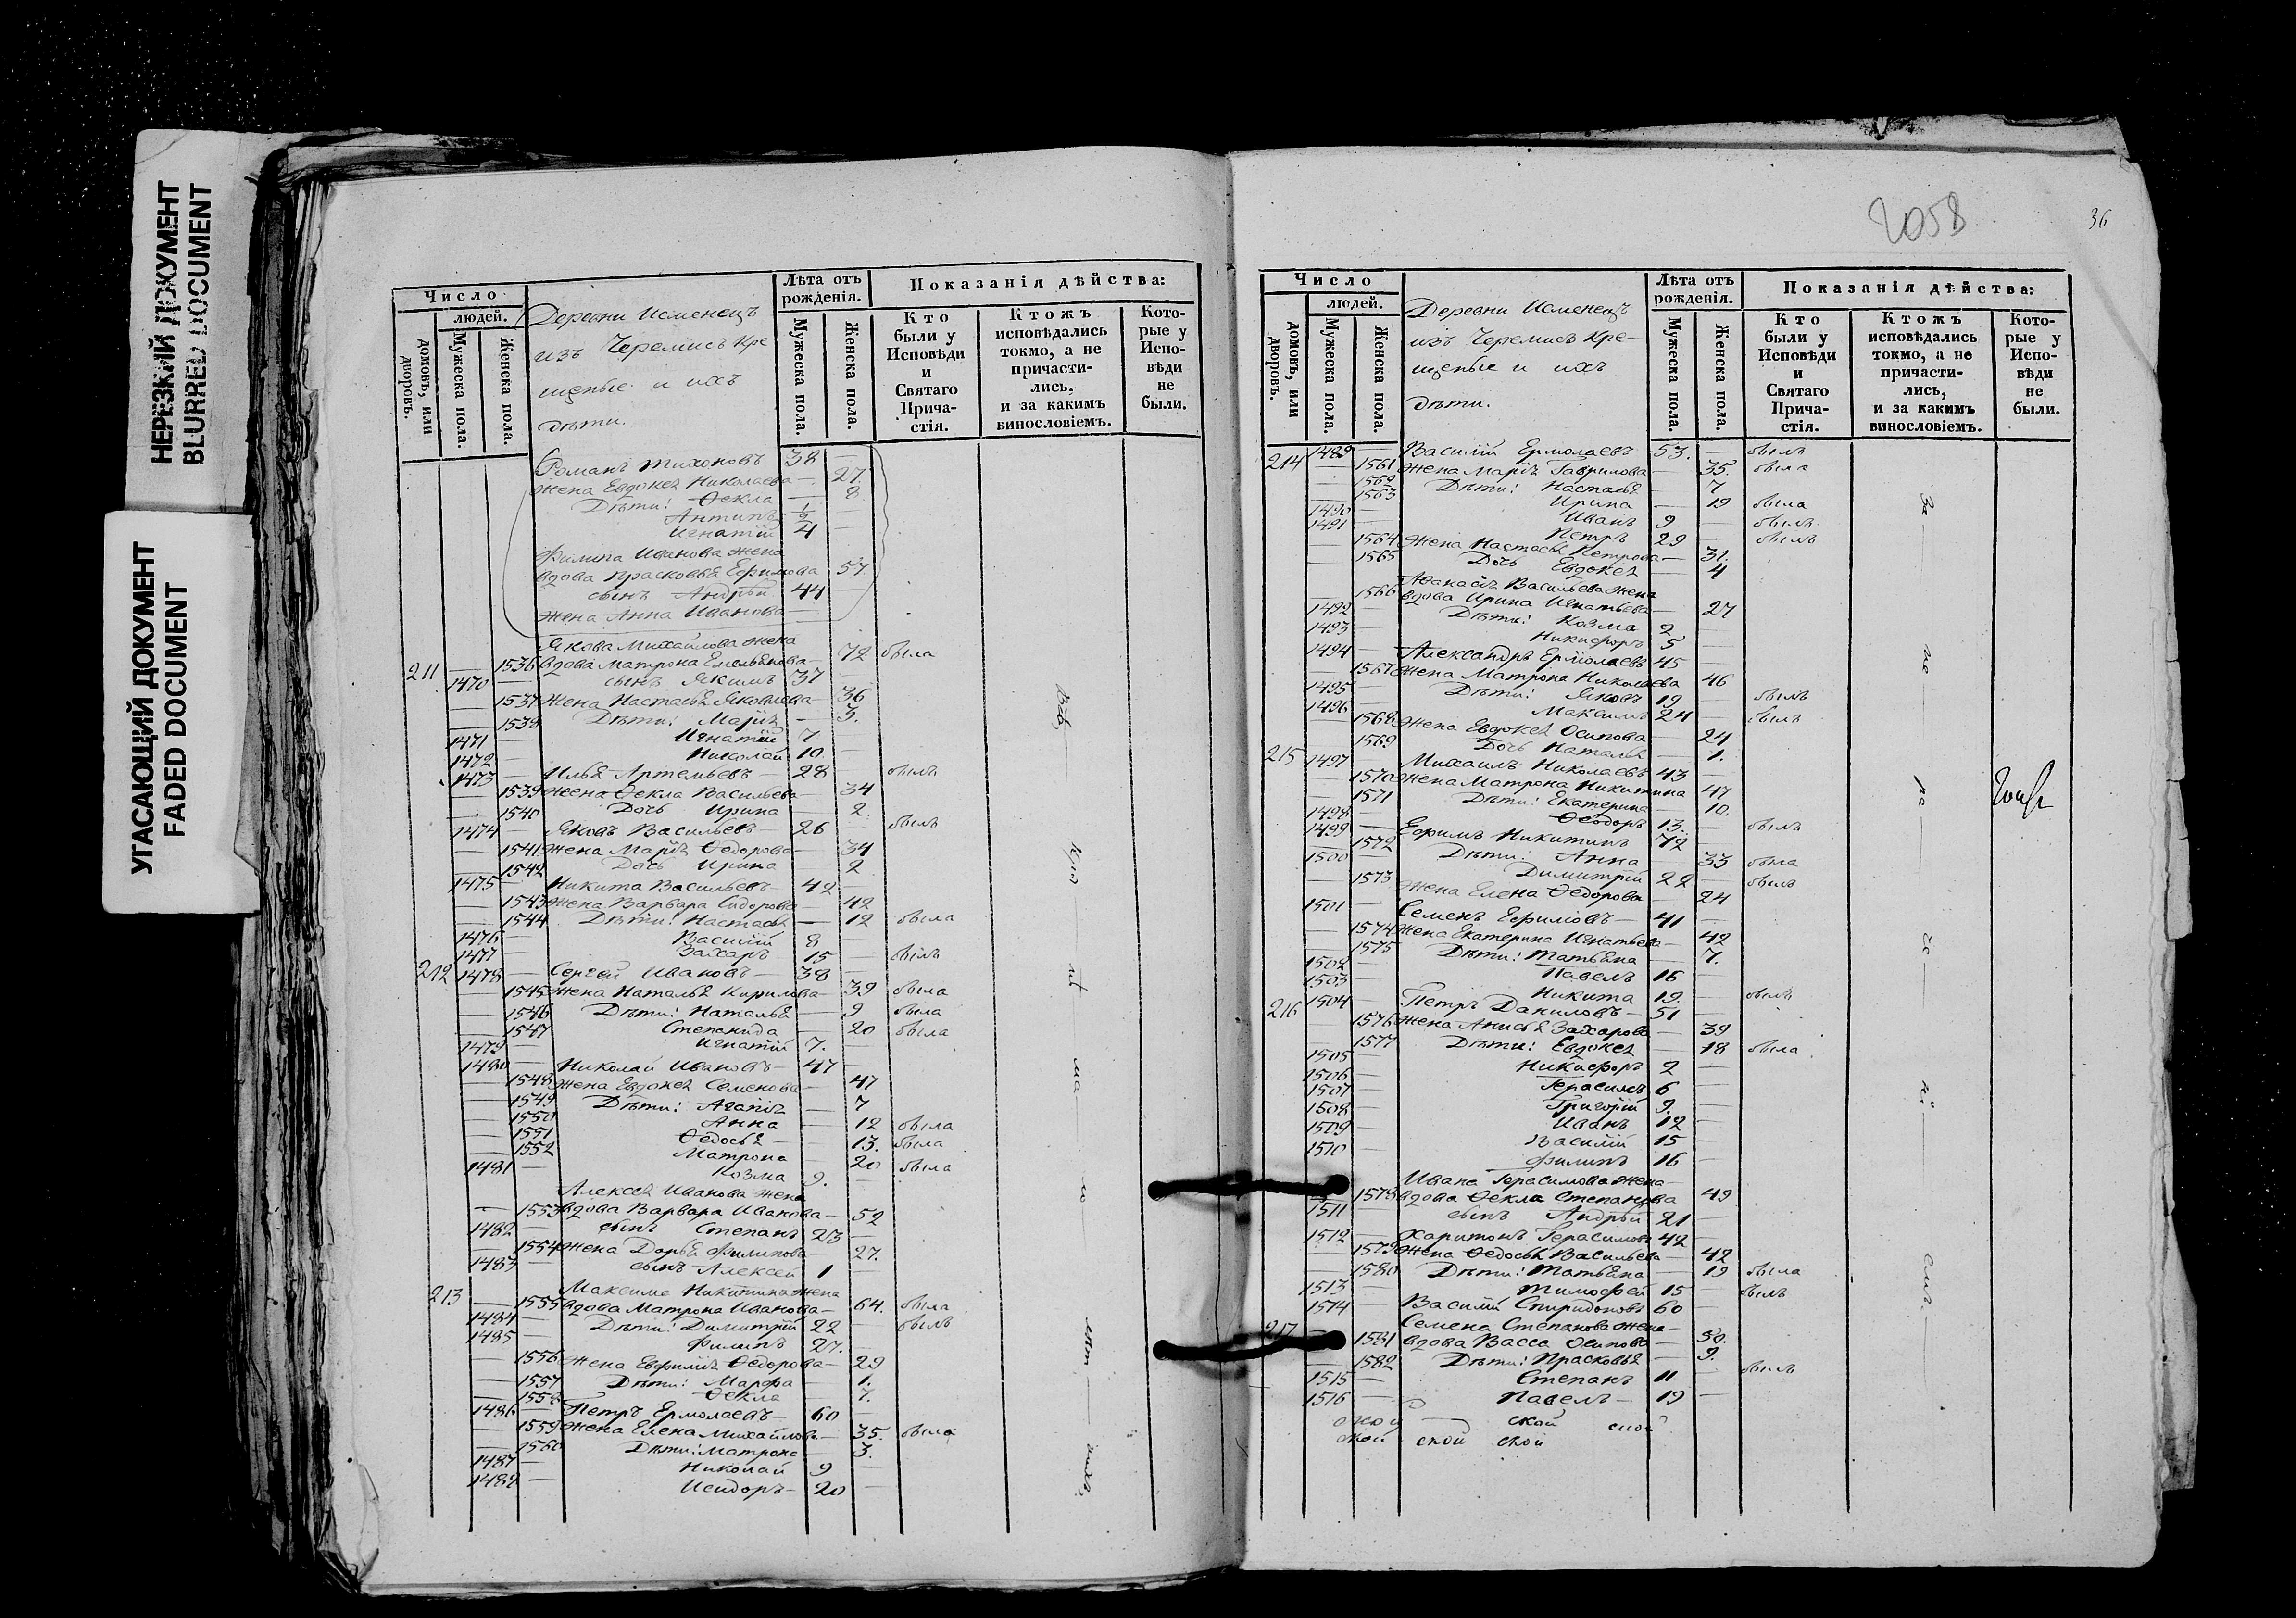 НЕРЕЗКИЙ ДОКУМЕНТ
BLURRED DOCUMENT
УГАСАЮЩИЙ ДОКУМЕНТ
FADED DOCUMENT
Число
людей.
домовъ, или дворовъ.
Мужеска пола.
Женска пола.
Деревни Исменецъ
изъ Черемисъ кре
щеные и ихъ
дѣти.
Лѣта отъ рожденія.
Мужеска пола.
Женска пола.
Показанія дѣйства:
Кто были у Исповѣди и Святаго Прича-стія.
Ктожъ исповѣдались токмо, а не причасти-лись, и за какимъ винословіемъ.
Кото-рые у Испо-вѣди не были.
Романъ Тихоновъ 38 —
жена Евдокея Николаева — 27.
Дѣти: Ѳекла — 8
Антипъ 1/2 —
Игнатій 4 —
Филипа Иванова жена
вдова Прасковья Ефимова 57
сынъ Андрей 44 —
жена Анна Иванова —
Якова Михайлова жена
211 — 1536 вдова Матрона Емельянова — 72 была
1470 — сынъ Якимъ 37 —
— 1537 жена Настасья Яковлева — 36
— 1538 Дѣти: Марія — 3.
1471 — Игнатій 7 —
1472 — Николай 10 —
1473 — Илья Артемьевъ — 28 былъ
— 1539 жена Ѳекла Васильева — 34
— 1540 Дочь Ирина 2.
1474 — Яковъ Васильевъ — 26 — былъ
— 1541 жена Марія Ѳедорова — 34
— 1542 Дочь Ирина 2
1475 — Никита Васильевъ — 42 —
— 1543 жена Варвара Сидорова — 42
— 1544 Дѣти: Настасья — 12 была
1476 — Василій 8 —
1477 — Захаръ 15 — былъ
212 1478 — Сергей Ивановъ — 38 —
— 1545 жена Наталья Кирилова — 39 была
— 1546 Дѣти: Наталья — 9 была
— 1547 Степанида — 20 была
1479 — Игнатій 7. —
1480 — Николай Ивановъ — 47 —
— 1548 жена Евдокея Семенова — 47
— 1549 Дѣти: Агапія — 7
— 1550 Анна — 12 была
— 1551 Ѳедосья — 13. была
— 1552 Матрона — 20 была
1481 — Козма 9. —
Алексея Иванова жена
— 1553 вдова Варвара Иванова — 52
1482 — сынъ Степанъ 23 —
— 1554 жена Дарья Филипова — 27.
1483 — сынъ Алексей 1 —
Максима Никитина жена
213 — 1555 вдова Матрона Иванова — 64. была
1484 — Дѣти: Димитрій 22 — былъ
1485 — Филипъ 27. —
— 1556 жена Евфимія Ѳедорова — 29
— 1557 Дѣти: Марфа 1.
— 1558 Ѳекла 7.
1486 — Петръ Ермолаевъ — 60 —
— 1559 жена Елена Михайлова — 35. была
— 1560 Дѣти: Матрона 3.
1487 — Николай 9 —
1488 — Исидоръ — 20 —
2058
36
Число
людей.
домовъ, или дворовъ.
Мужеска пола.
Женска пола.
Деревни Исменецъ
изъ Черемисъ кре-
щеные и ихъ
дѣти.
Лѣта отъ рожденія.
Мужеска пола.
Женска пола.
Показанія дѣйства:
Кто были у Исповѣди и Святаго Прича-стія.
Ктожъ исповѣдались токмо, а не причасти-лись, и за какимъ винословіемъ.
Кото-рые у Испо-вѣди не были.
214 1489 — Василій Ермолаевъ 53. — былъ
— 1561 жена Марія Гаврилова — 35. была
1562 Дѣти: Настасья — 7
1563 Ирина — 19 была
1490 — Иванъ 9 — былъ
1491 — Петръ 29 — былъ
— 1564 жена Настасья Петрова — 31.
— 1565 Дочь Евдокея — 4
Аѳанасія Васильева жена
— 1566 вдова Ирина Игнатьева — 27
1492 — Дѣти: Козма 2 —
1493 — Никифоръ 5 —
1494 — Александръ Ермолаевъ 45 —
— 1567 жена Матрона Николаева 46
1495 — Дѣти: Яковъ 19 — былъ
1496 — Максимъ 24 — былъ
— 1568 жена Евдокея Осипова — 24
— 1569 Дочь Наталья — 1.
215 1497 — Михаилъ Николаевъ 43 —
— 1570 жена Матрона Никитина 47
— 1571 Дѣти: Екатерина — 10.
1498 — Ѳедоръ 13. — былъ
1499 — Ефимъ Никитинъ 72 —
— 1572 Дѣти: Анна — 33 была
1500 — Димитрій 22 — былъ
— 1573 жена Елена Ѳедорова — 24
1501 — Семенъ Ефимовъ — 41 —
— 1574 жена Екатерина Игнатьева — 42
— 1575 Дѣти: Татьяна — 7.
1502 — Павелъ 16 —
1503 — Никита 19. — былъ
216 1504 — Петръ Даниловъ — 51 —
— 1576 жена Анисья Захарова — 39
— 1577 Дѣти: Евдокея — 18 была
1505 — Никифоръ 2 —
1506 — Герасимъ 6 —
1507 — Григорій 9. —
1508 — Иванъ 12 —
1509 — Василій 15 —
1510 — Филипъ 16 —
Ивана Герасимова жена —
1578 вдова Ѳекла Степанова 49
1511 сынъ Андрей 21 —
1512 — Харитонъ Герасимовъ 42 —
— 1579 жена Ѳедосья Васильева 42
— 1580 Дѣти: Татьяна — 19 была
1513 — Тимофей 15 — былъ
1514 — Василій Спиридоновъ 60 —
217 Семена Степанова жена —
1581 вдова Васса Осипова — 50.
— 1582 Дѣти: Прасковья — 9.
1515 — Степанъ 11 — былъ
1516 — Павелъ — 19 —
ской
ской ской ской